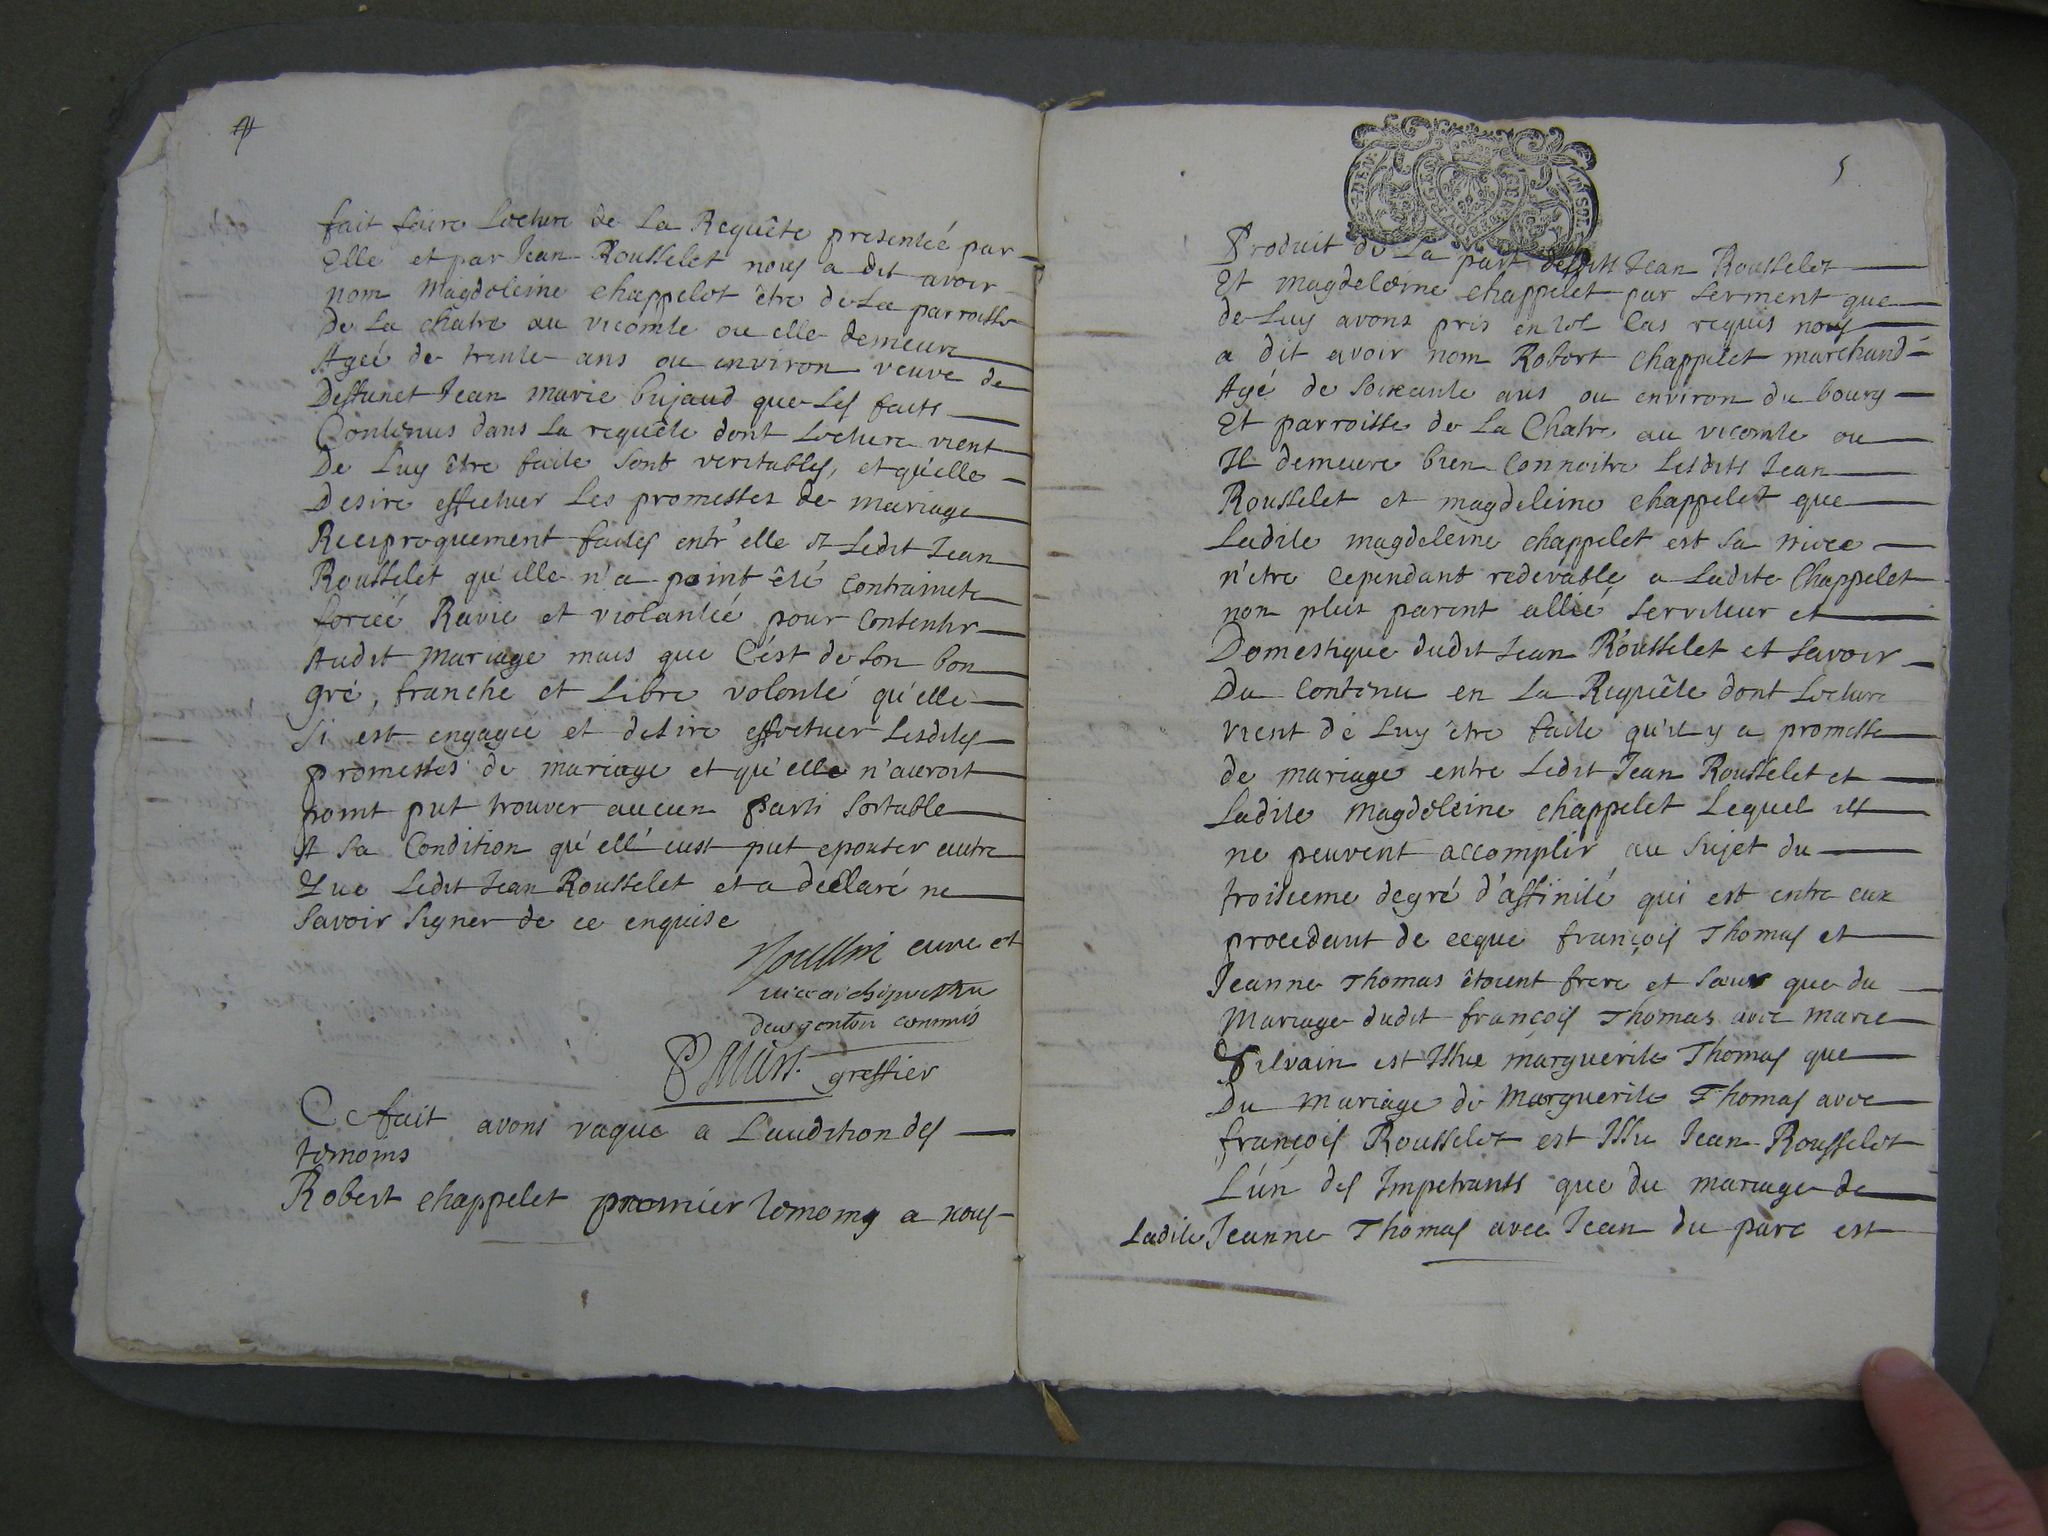 4
fait faire Lecture de La Requête presentéé par
Elle et par Jean Rousselet nous a dit avoir
nom Magdeleine chappelet être de La parroisse
de La châtre au vicomte ou elle demeure
Ageé de trente ans ou environ veuve de
Deffunct Jean marie bujaud que Les faits
Contenus dans La requête dont Lecture vient
De Luy être faite sont veritables, et qu'elle
Desire effectuer Les promesses de mariage
Reciproquement faites entr'elle et Ledit Jean
Rousselet qu'elle n'a point été contrainte
forcéé Ravie et violantéé pour consentir
Audit Mariage mais que C'ést de son bon
gré, franche et Libre volonté qu'elle
si est engagée et desire effectuer Lesdites
promesses de mariage et qu'elle n'auroit
point put trouver aucun parti sortable
A sa Condition qu'ell'eust put epouser autre
Que Ledit Jean Rousselet et a declaré ne
savoir signer de ce enquise
curé et
vice archiprestre
dargenton commis
greffier
Ce fait avons vaque a Laudition des
temoins
Robert chappelet premier temoing a nous
5
DEN IN SOL
Produit de La part desdits Jean Rousselet
Et Magdeleine chappelet par serment que
de Luy avons pris en tel Cas requis nous
a dit avoir nom Robert Chappelet marchand
Agé de soixante ans ou environ du bourg
Et parroisse de La Chatre au vicomte ou
Il demeure bien Connoitre Lesdits Jean
Rousselet et magdeleine chappelet que
Ladite magdeleine chappelet est sa niece
n'etre Cependant redevable a Ladite Chappelet
non plus parent allié serviteur et
Domestique dudit Jean Rousselet et savoir
Du Contenu en La Requête dont Lecture
vient de Luy être faite qu'il y a promesse
de mariage entre Ledit Jean Rousselet et
Ladite Magdeleine chappelet Lequel ils
ne peuvent accomplir au sujet du
troisieme degré d'affinité qui est entre eux
procedant de ceque françois Thomas et
Jeanne Thomas étoient frere et sœur que du
Mariage dudit françois Thomas avec Marie
Silvain est Issue marguerite Thomas que
Du Mariage de Marguerite Thomas avec
françois Rousselet est Issu Jean Rousselet
L'un des Impetrants que du mariage de
Ladite Jeanne Thomas avec Jean du parc est